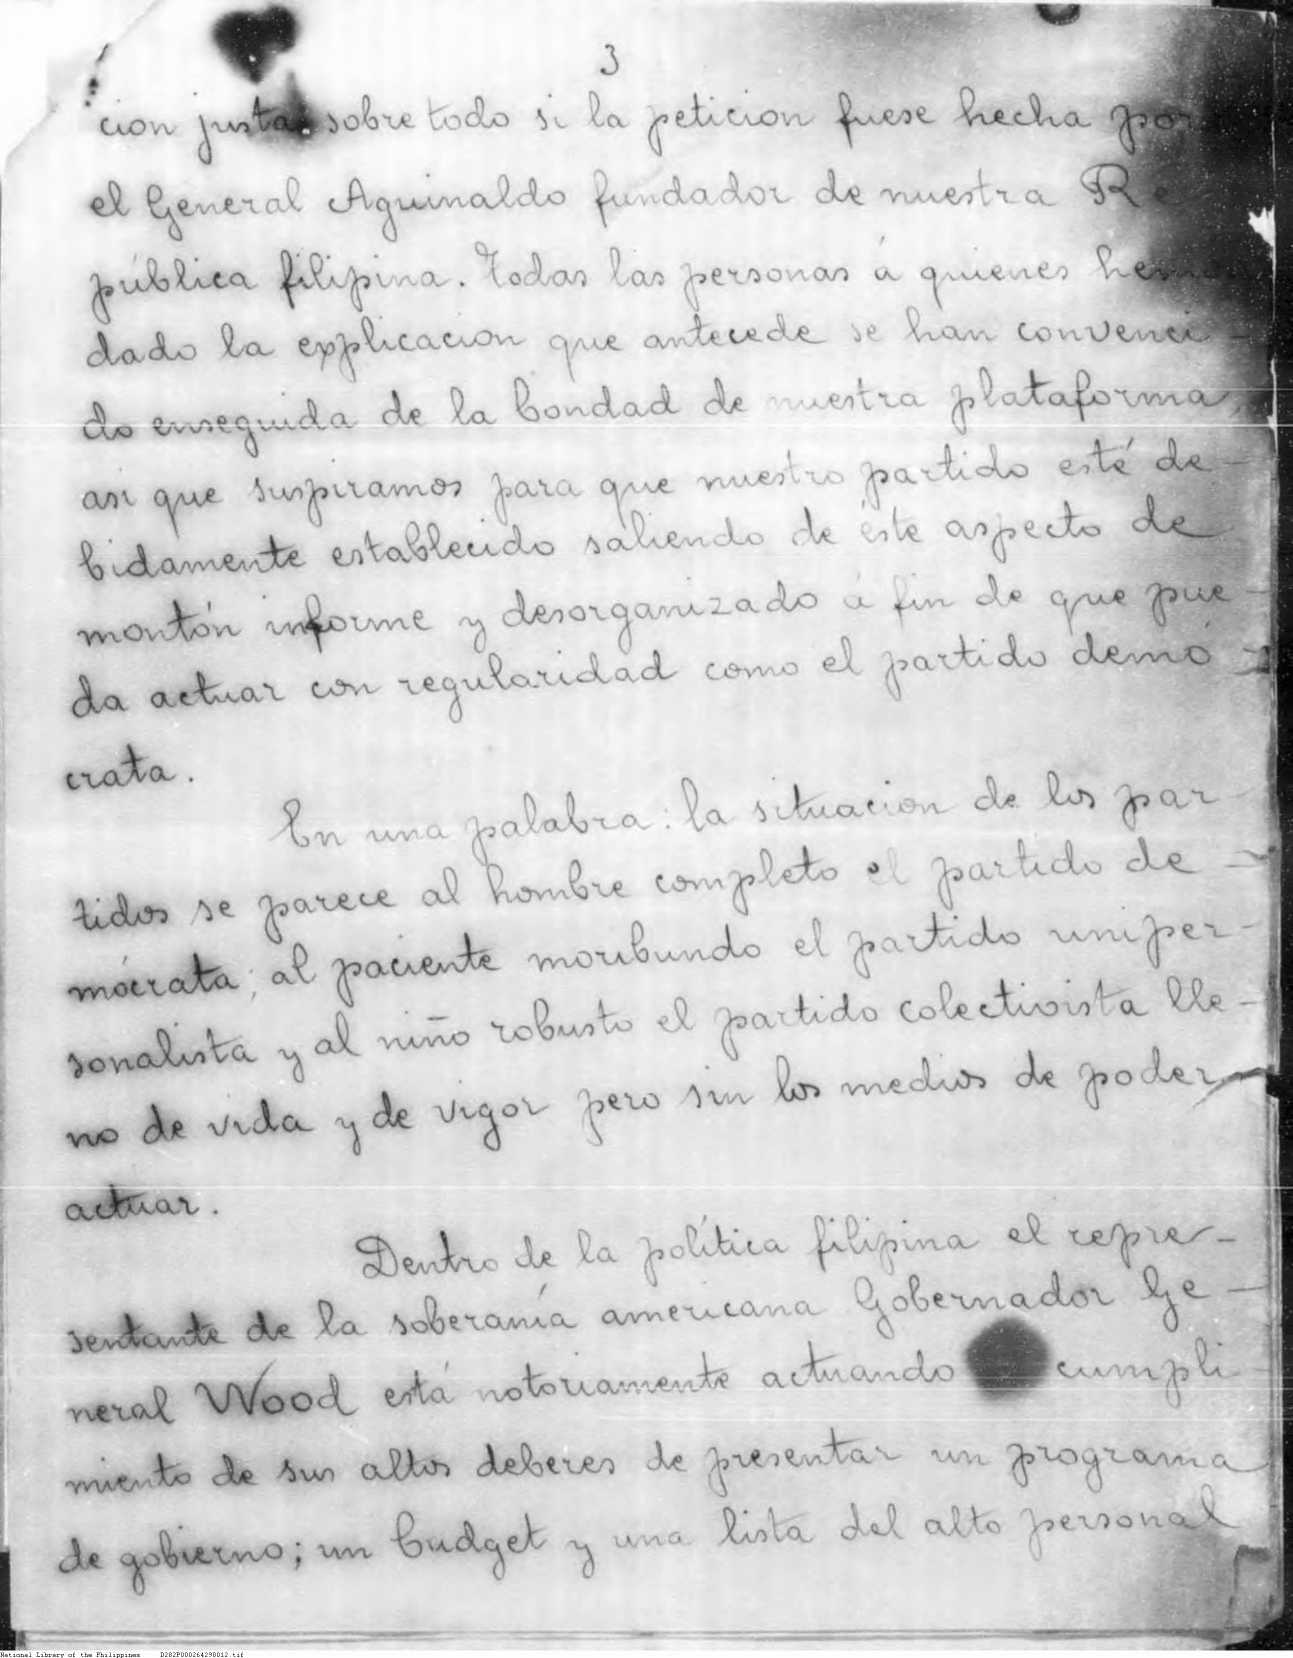 3
cion justa sobre todo si la peticion fuese hecha por
el General Aguinaldo fundador de nuestra Re
pública filipina. Todas las personas á quienes hemos
dado la explicacion que antecede se han convenci-
do enseguida de la bondad de nuestra plataforma,
asi que suspiramos para que nuestro partido esté de-
bidamente establecido saliendo de éste aspecto de
montón informe y desorganizado á fin de que pue-
da actuar con regularidad como el partido demó-
crata.
En una palabra: la situacion de los par-
tidos se parece al hombre completo el partido de-
mócrata; al paciente moribundo el partido uniper-
sonalista y al niño robusto el partido colectivista lle-
no de vida y de vigor pero sin los medios de poder
actuar.
Dentro de la política filipina el repre-
sentante de la soberanía americana Gobernador Ge-
neral Wood está notoriamente actuando cumpli-
miento de sus altos deberes de presentar un programa
de gobierno; un budget y una lista del alto personal
National Library of the Philippines D282P000264298012.tif